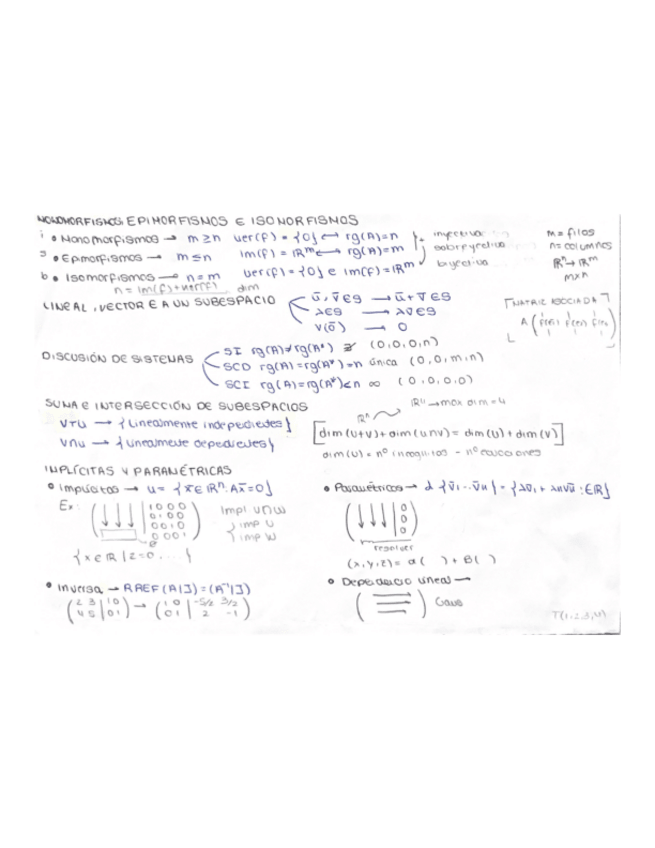 MONOMORFISMOS EPIMORFISMOS E ISOMORFISMOS
i • Monomorfismos → m ≥ n ker(f) = {0} ↔ rg(A)=n inyectiva
m = filas
s • Epimorfismos → m ≤ n Im(f) = ℝᵐ ↔ rg(A)=m sobreyectiva
n = columnas
b • Isomorfismos → n = m ker(f) = {0} e Im(f) = ℝᵐ biyectiva
ℝⁿ → ℝᵐ
m×n
n = Im(f) + ker(f) dim
LINEAL, VECTOR E A UN SUBESPACIO
ū, v̄ ∈ S → ū + v̄ ∈ S
λ ∈ S → λv̄ ∈ S
V(ō) → 0
MATRIZ ASOCIADA
A
DISCUSIÓN DE SISTEMAS
SI rg(A) ≠ rg(A*) ∄ (0,0,0,n)
SCD rg(A) = rg(A*) = n única (0,0,m,n)
SCI rg(A) = rg(A*) < n ∞ (0,0,0,0)
SUMA E INTERSECCIÓN DE SUBESPACIOS
ℝⁿ → max dim = 4
V+U → {Linealmente independientes}
V∩U → {Linealmente dependientes}
[dim(U+V) + dim(U∩V) = dim(U) + dim(V)]
dim(U) = nº incognitas - nº ecuaciones
IMPLÍCITAS Y PARAMÉTRICAS
• Implícitas → U = {x̄ ∈ ℝⁿ: Ax̄ = 0}
Ex:
1 0 0 0
0 1 0 0
0 0 1 0
0 0 0 1
Impl U∩W
{ imp U
imp W
{x ∈ ℝ | z=0 ....}
• Paramétricas → L {v̄1 ... v̄n} = {λv̄1 + λnv̄n : ∈ ℝ}
0
0
0
resolver
(x,y,z) = α( ) + β( )
• Inversa → RREF (A|I) = (A⁻¹|I)
(2 3 | 1 0
4 5 | 0 1) → (1 0 | -5/2 3/2
0 1 | 2 -1)
• Dependencia lineal →
Gauss
T(1,2,3,4)